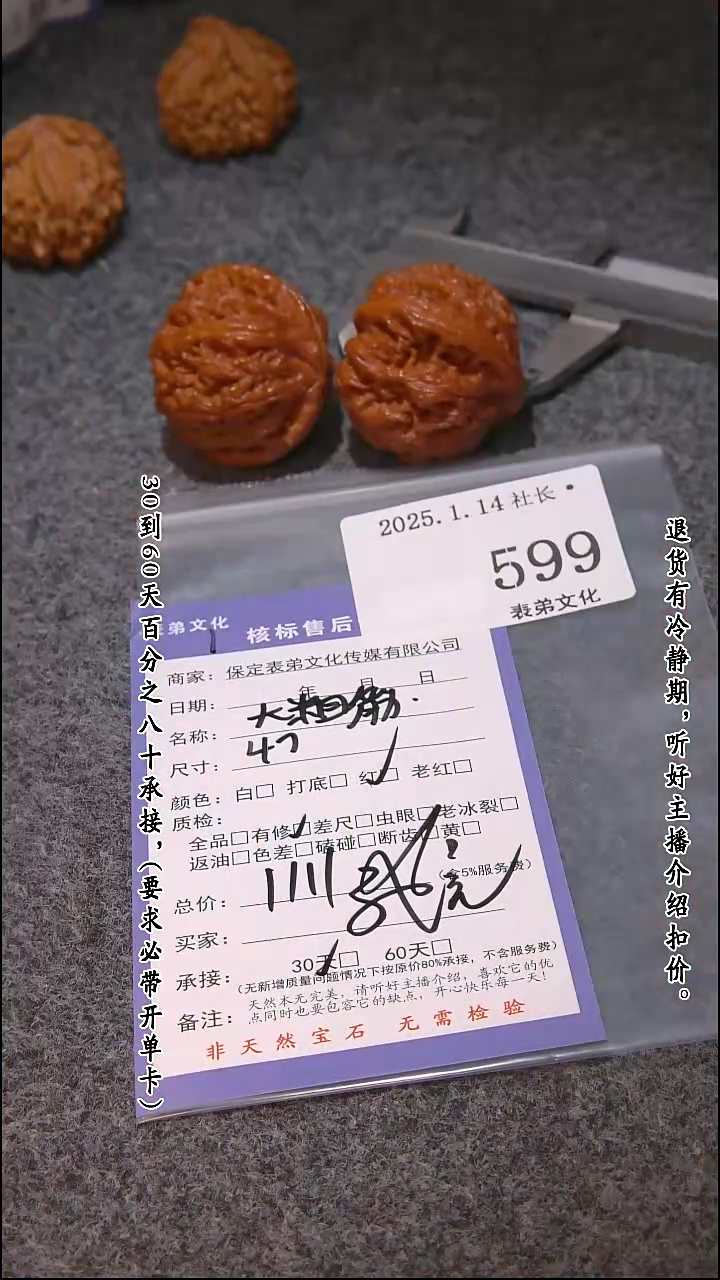 2025.1.14 社长·
599
表弟文化
表弟文化
核标售后
商家：保定表弟文化传媒有限公司
日期： 年 月 日
名称：
尺寸：47
颜色：白□ 打底□ 红□ 老红□
质检：
全品□有修□差尺□虫眼□老冰裂□
返油□色差□磕碰□断齿□黄□
总价： 1111 元 （含5%服务费）
买家：
承接： 30天□ 60天□
（无新增质量问题情况下按原价80%承接，不含服务费）
备注：天然本无完美，请听好主播介绍，喜欢它的优
点同时也要包容它的缺点，开心快乐每一天！
非天然宝石 无需检验
30到60天百分之八十承接，（要求必带开单卡）
退货有冷静期，听好主播介绍扣价。